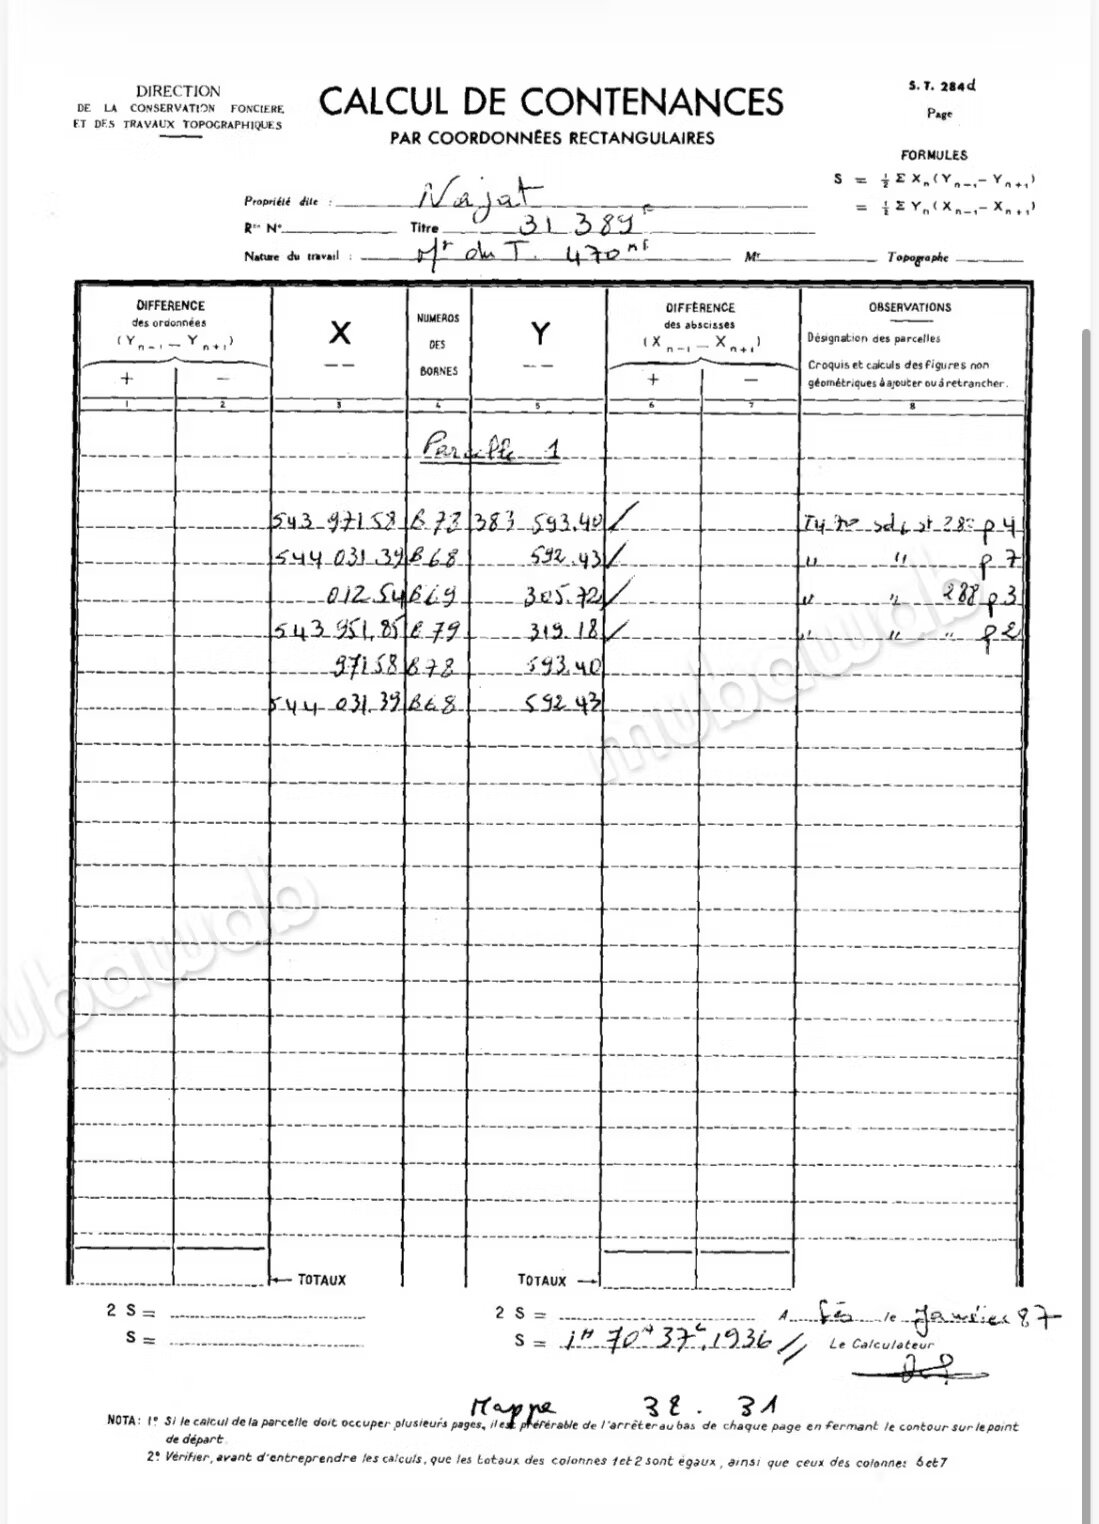 DIRECTION
DE LA CONSERVATION FONCIERE
ET DES TRAVAUX TOPOGRAPHIQUES
CALCUL DE CONTENANCES
PAR COORDONNÉES RECTANGULAIRES
S. T. 284d
Page
FORMULES
S = ½ Σ Xn (Yn-1 - Yn+1)
= ½ Σ Yn (Xn-1 - Xn+1)
Propriété dite : Najat
Ron N° Titre 31 389 F
Nature du travail : du T. 470 Mr Topographe
DIFFÉRENCE des ordonnées (Yn-1 - Yn+1)
X
NUMEROS DES BORNES
Y
DIFFÉRENCE des abscisses (Xn-1 - Xn+1)
OBSERVATIONS
Désignation des parcelles
Croquis et calculs des figures non géométriques à ajouter ou à retrancher.
+ - + -
1 2 3 4 5 6 7 8
Parcelle 1
543 971.58 B 78 383 593.40 p 4
544 031.39 B 68 592.43 " " p 7
012.54 B 69 305.72 " " 288 p 3
543 951.85 B 79 319.18 " " " p 2
971.58 B 78 593.40
544 031.39 B 68 592.43
TOTAUX TOTAUX
2 S = 2 S = A Fès le Janvier 87
S = S = 1H 70A 37C,1936 Le Calculateur
Mappe 38. 31
NOTA: 1° Si le calcul de la parcelle doit occuper plusieurs pages, il est préférable de l'arrêter au bas de chaque page en fermant le contour sur le point
de départ.
2° Vérifier, avant d'entreprendre les calculs, que les totaux des colonnes 1 et 2 sont égaux, ainsi que ceux des colonnes 6 et 7
mubawab
mubawab